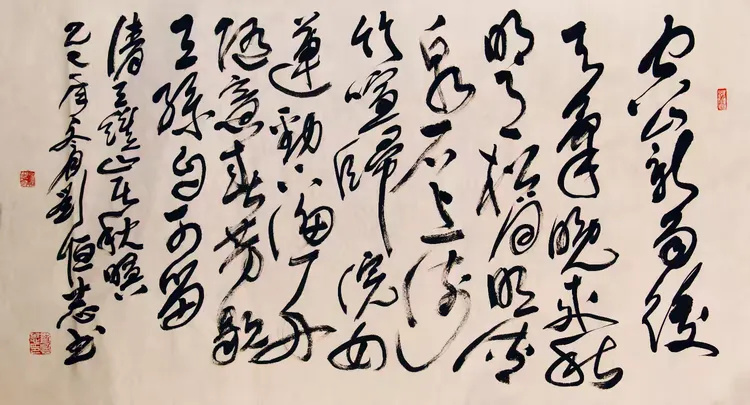 空山新雨後
天氣晚來秋
明月松間照
泉石上流
竹喧歸浣女
蓮動下漁舟
隨意春芳歇
王孫自可留
清王維山居秋暝
劉恒志書